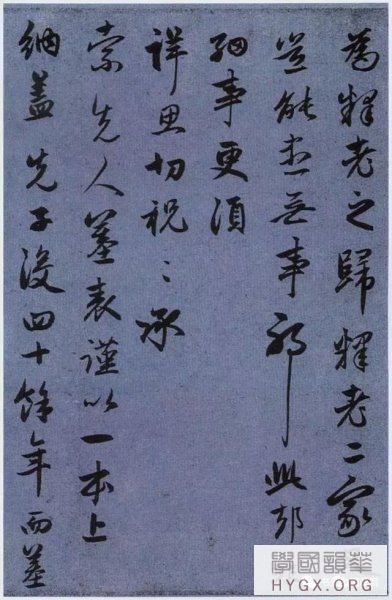 為釋老之歸釋老二家
豈能盡無事耶此却
細事更須
詳思切祝〻承
索先人墓表謹以一本上
納蓋先子沒四十餘年而墓
學國韻華
HYGX.ORG